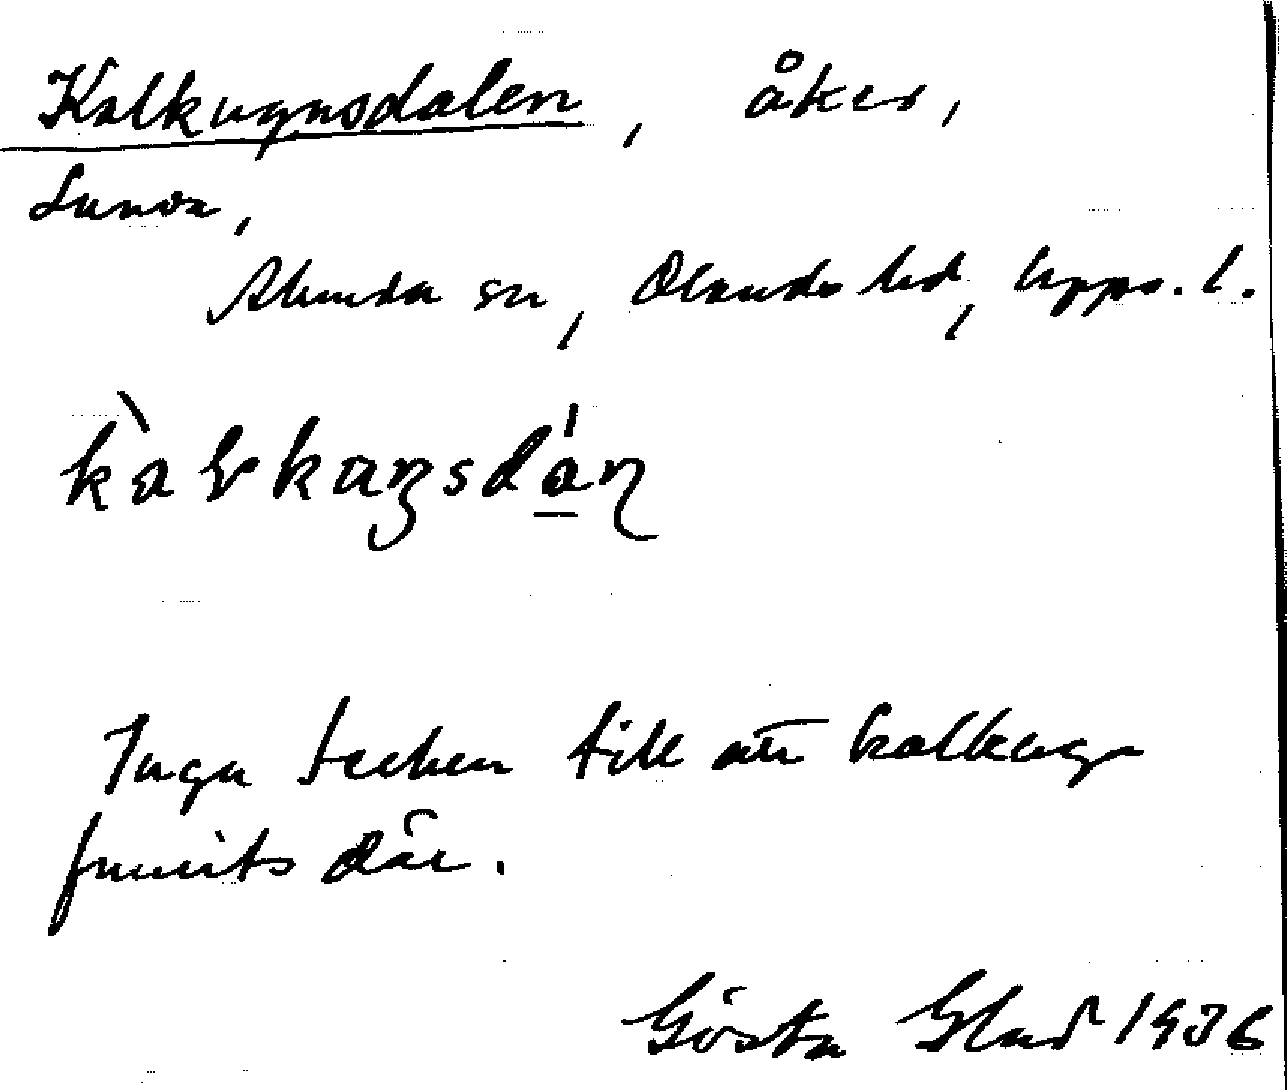 Kalkugnsdalen, åker,
Lunda,
Alunda sn, Olands hd, Upps. l.
Inga tecken till att kalkugn
funnits där.
Gösta Glad 1936